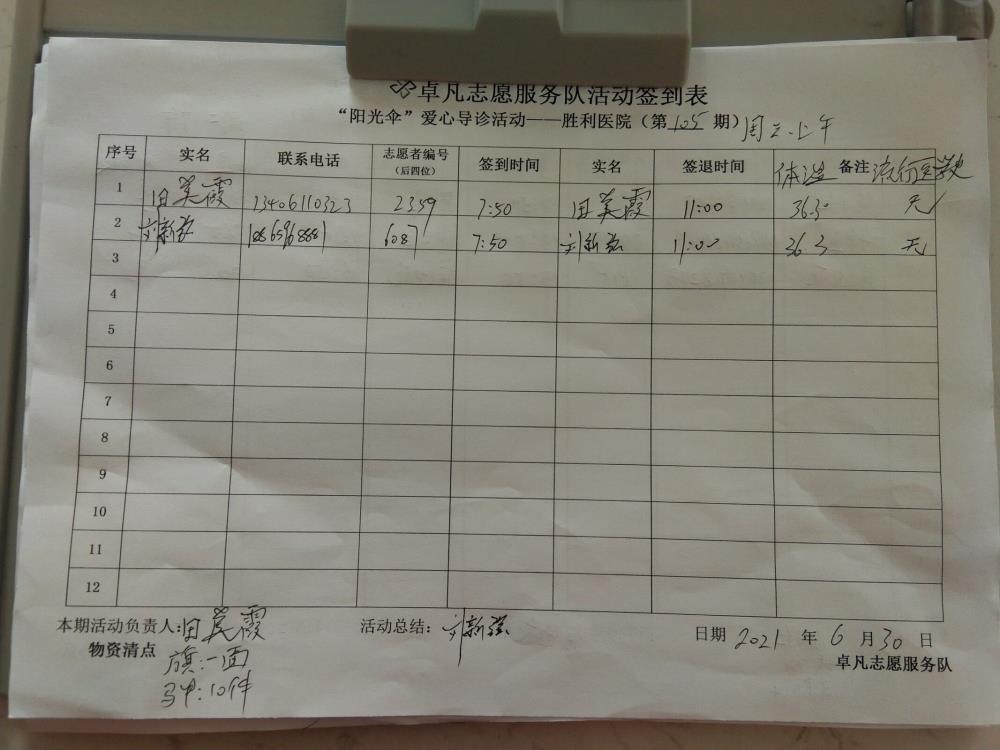 卓凡志愿服务队活动签到表
“阳光伞”爱心导诊活动——胜利医院（第 105 期）周三上午
序号 实名 联系电话 志愿者编号（后四位） 签到时间 实名 签退时间 体温 备注 流行病学史
1 田美霞 13406110323 2359 7:50 田美霞 11:00 36.3° 无
2 刘新强 6087 7:50 刘新强 11:00 36.3 无
3
4
5
6
7
8
9
10
11
12
本期活动负责人:田美霞 活动总结: 刘新强 日期 2021 年 6 月 30 日
物资清点 卓凡志愿服务队
旗:一面
马甲:10件